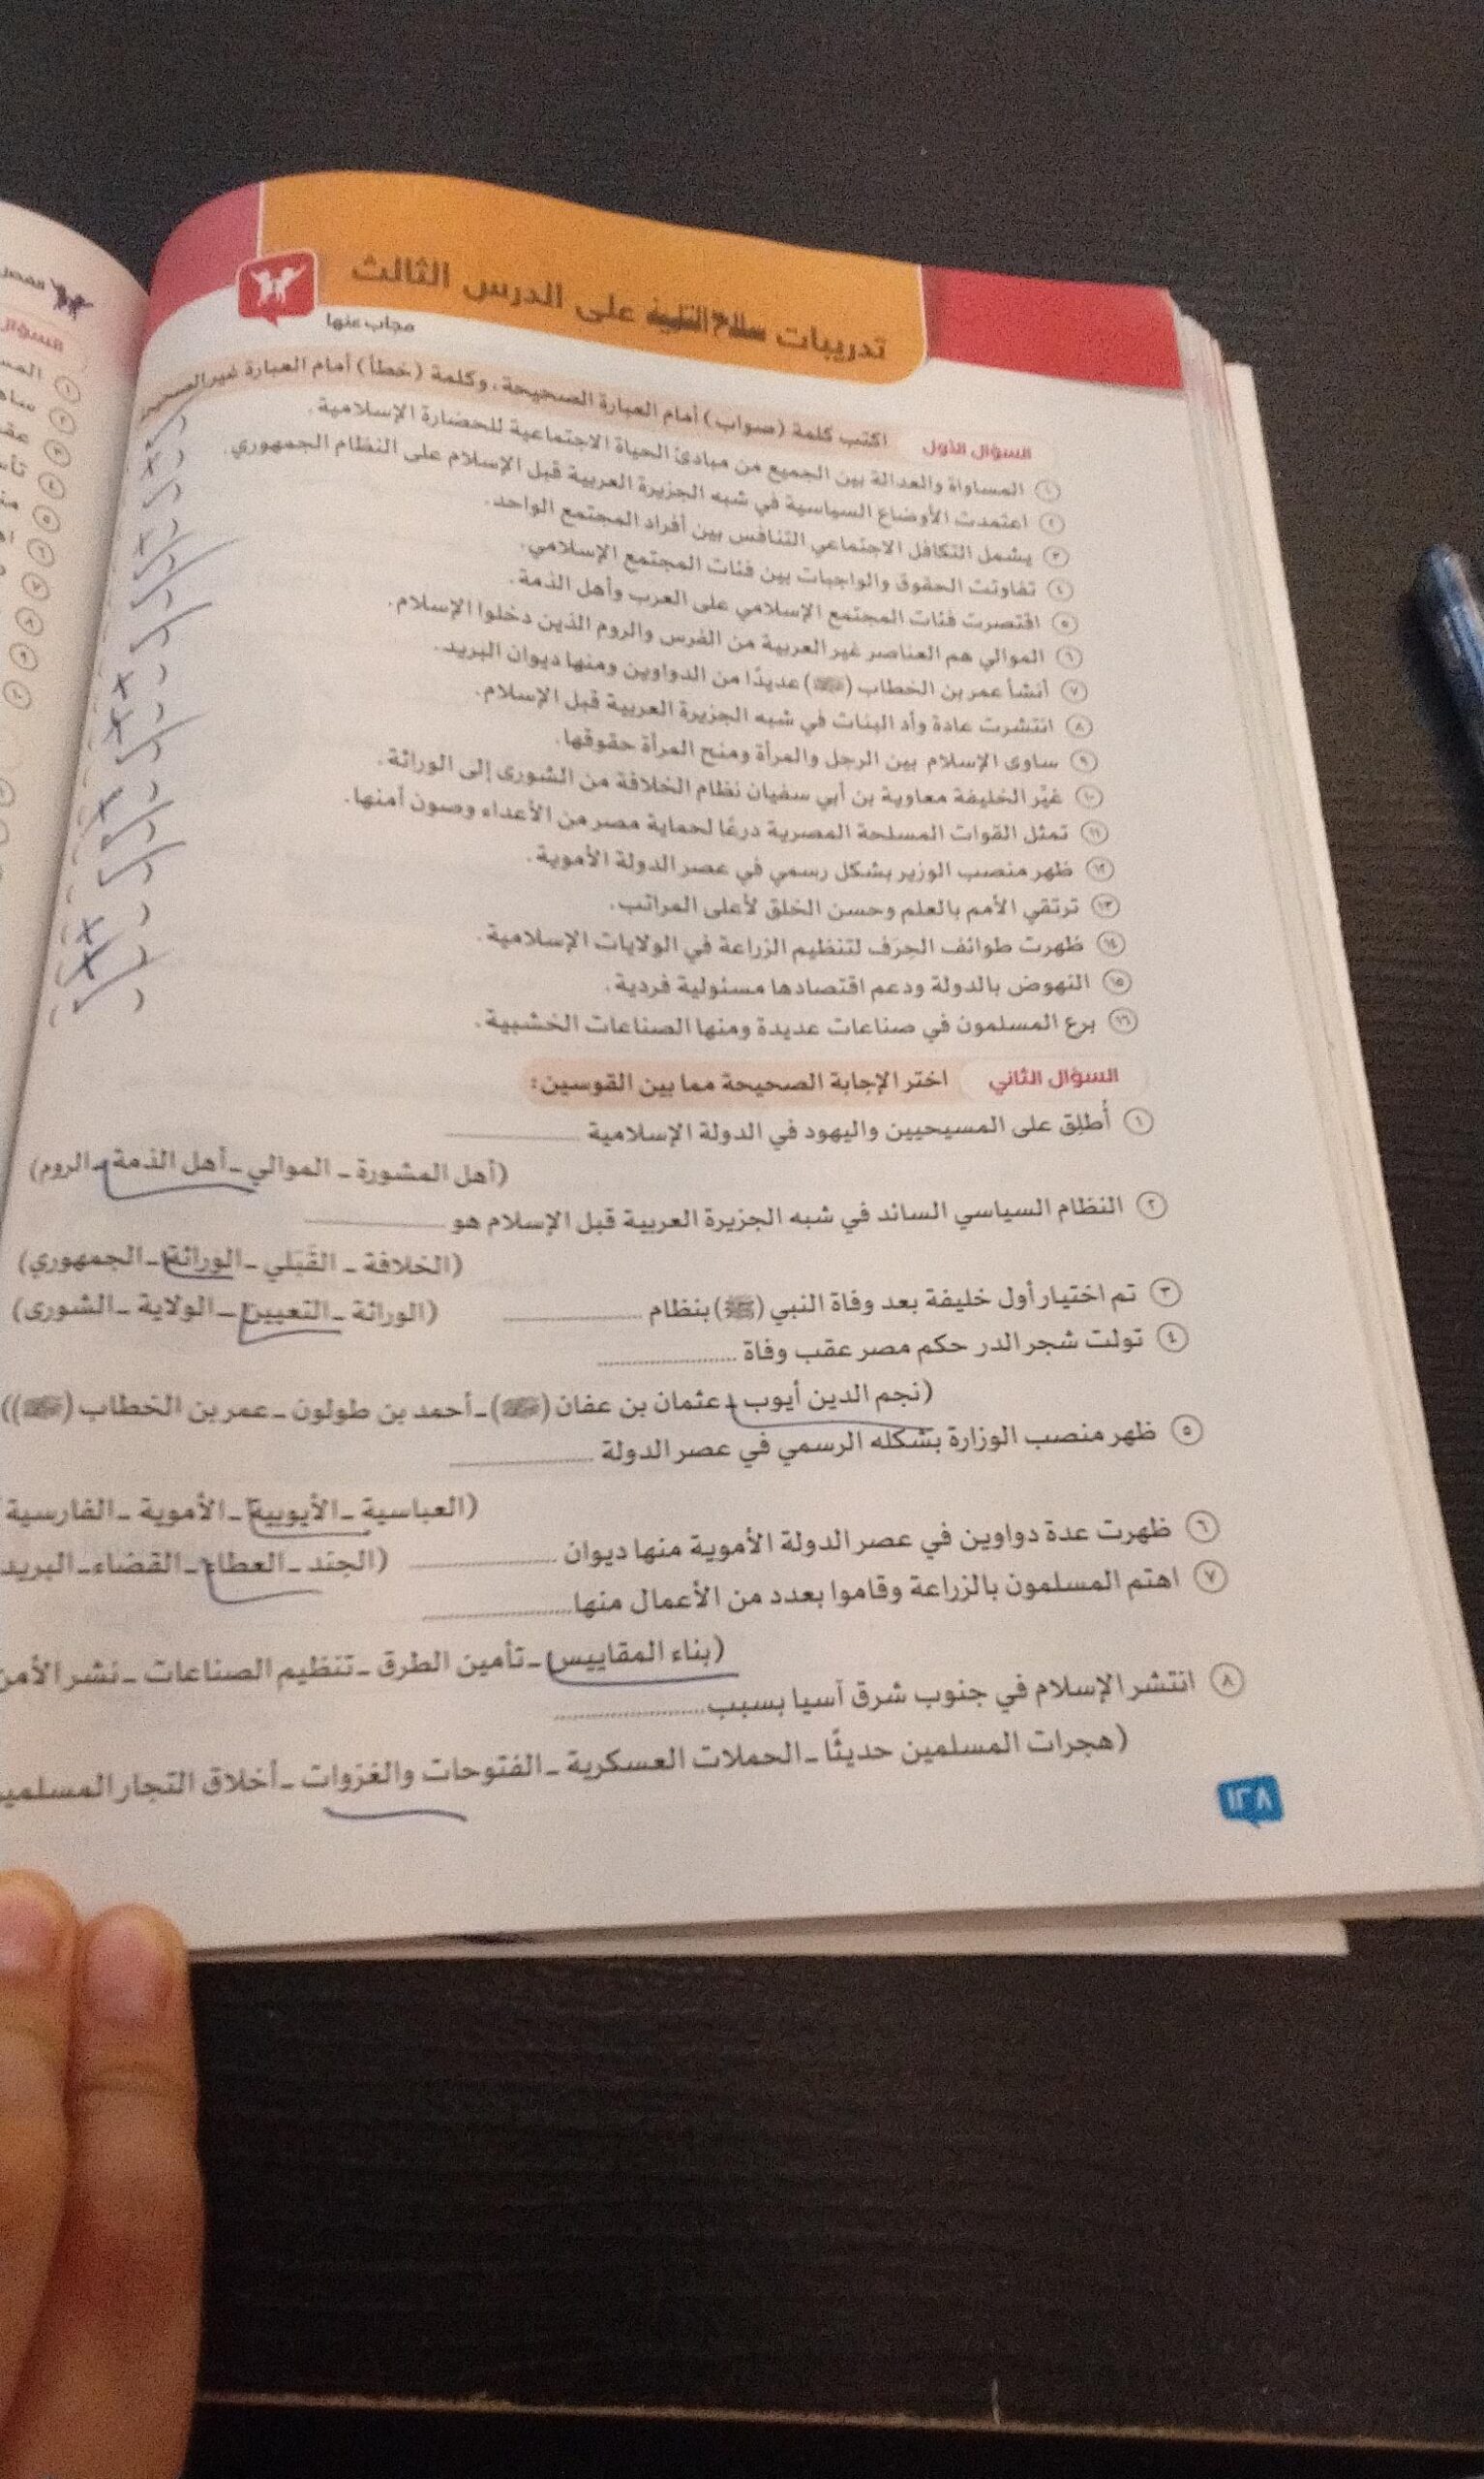 تدريبات سلاح التلميذ على الدرس الثالث
مجاب عنها
السؤال الأول اكتب كلمة (صواب) أمام العبارة الصحيحة، وكلمة (خطأ) أمام العبارة غير الصحيحة
١ المساواة والعدالة بين الجميع من مبادئ الحياة الاجتماعية للحضارة الإسلامية.
٢ اعتمدت الأوضاع السياسية في شبه الجزيرة العربية قبل الإسلام على النظام الجمهوري.
٣ يشمل التكافل الاجتماعي التنافس بين أفراد المجتمع الواحد.
٤ تفاوتت الحقوق والواجبات بين فئات المجتمع الإسلامي.
٥ اقتصرت فئات المجتمع الإسلامي على العرب وأهل الذمة.
٦ الموالي هم العناصر غير العربية من الفرس والروم الذين دخلوا الإسلام.
٧ أنشأ عمر بن الخطاب () عديدًا من الدواوين ومنها ديوان البريد.
٨ انتشرت عادة وأد البنات في شبه الجزيرة العربية قبل الإسلام.
٩ ساوى الإسلام بين الرجل والمرأة ومنح المرأة حقوقها.
١٠ غيَّر الخليفة معاوية بن أبي سفيان نظام الخلافة من الشورى إلى الوراثة.
١١ تمثل القوات المسلحة المصرية درعًا لحماية مصر من الأعداء وصون أمنها.
١٢ ظهر منصب الوزير بشكل رسمي في عصر الدولة الأموية.
١٣ ترتقي الأمم بالعلم وحسن الخلق لأعلى المراتب.
١٤ ظهرت طوائف الحِرَف لتنظيم الزراعة في الولايات الإسلامية.
١٥ النهوض بالدولة ودعم اقتصادها مسئولية فردية.
١٦ برع المسلمون في صناعات عديدة ومنها الصناعات الخشبية.
السؤال الثاني اختر الإجابة الصحيحة مما بين القوسين:
١ أُطلِق على المسيحيين واليهود في الدولة الإسلامية
(أهل المشورة - الموالي - أهل الذمة - الروم)
٢ النظام السياسي السائد في شبه الجزيرة العربية قبل الإسلام هو
(الخلافة - القَبَلي - الوراثة - الجمهوري)
٣ تم اختيار أول خليفة بعد وفاة النبي (ﷺ) بنظام (الوراثة - التعيين - الولاية - الشورى)
٤ تولت شجر الدر حكم مصر عقب وفاة
(نجم الدين أيوب - عثمان بن عفان () - أحمد بن طولون - عمر بن الخطاب ())
٥ ظهر منصب الوزارة بشكله الرسمي في عصر الدولة
(العباسية - الأيوبية - الأموية - الفارسية
٦ ظهرت عدة دواوين في عصر الدولة الأموية منها ديوان (الجند - العطاء - القضاء - البريد
٧ اهتم المسلمون بالزراعة وقاموا بعدد من الأعمال منها
(بناء المقاييس - تأمين الطرق - تنظيم الصناعات - نشر الأمن
٨ انتشر الإسلام في جنوب شرق آسيا بسبب
(هجرات المسلمين حديثًا - الحملات العسكرية - الفتوحات والغزوات - أخلاق التجار المسلمي
١٣٨